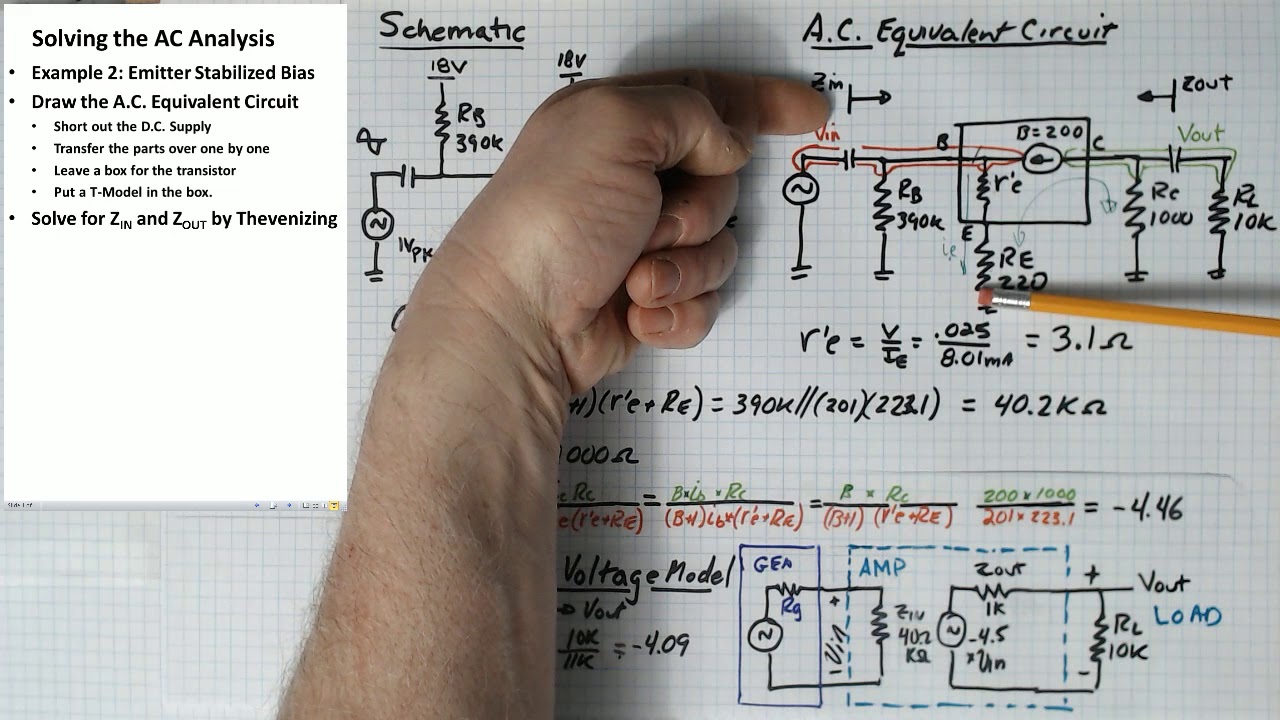 Solving the AC Analysis
• Example 2: Emitter Stabilized Bias
• Draw the A.C. Equivalent Circuit
• Short out the D.C. Supply
• Transfer the parts over one by one
• Leave a box for the transistor
• Put a T-Model in the box.
• Solve for ZIN and ZOUT by Thevenizing
Schematic
18V
18V
RB
390K
1VPK
A.C. Equivalent Circuit
Zin
Zout
Vin
Vout
B
B=200
C
r'e
E
ie
RB
390K
RE
220
Rc
1000
RL
10K
r'e = V/IE = .025/8.01mA = 3.1Ω
+1)(r'e+RE) = 390K//(201)(223.1) = 40.2KΩ
1000Ω
ic Rc / e(r'e+RE) = B×ib×Rc / (B+1)ib×(r'e+RE) = B × Rc / (B+1) (r'e+RE) 200×1000 / 201×223.1 = -4.46
Voltage Model
→ Vout
10K/11K = -4.09
GEN
Rg
+
Vin
-
AMP
ZIN
40Ω
KΩ
Zout
1K
-4.5
×Vin
+
Vout
LOAD
RL
10K
-